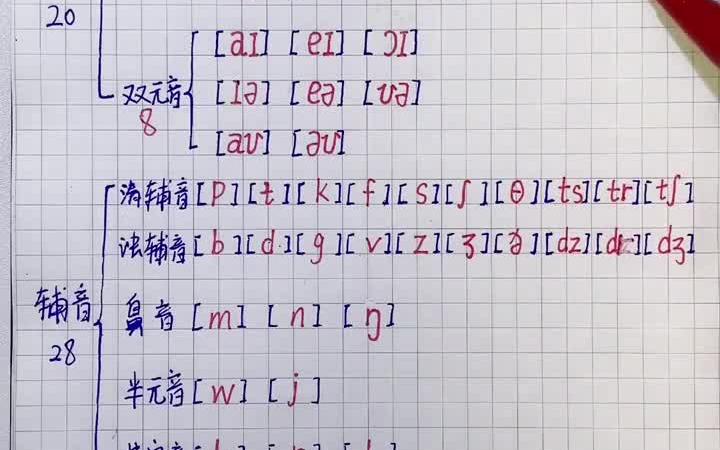 20
[aɪ] [eɪ] [ɔɪ]
双元音 [ɪə] [eə] [ʊə]
8
[aʊ] [əʊ]
清辅音 [p] [t] [k] [f] [s] [ʃ] [θ] [ts] [tr] [tʃ]
浊辅音 [b] [d] [g] [v] [z] [ʒ] [ð] [dz] [dr] [dʒ]
辅音
鼻音 [m] [n] [ŋ]
28
半元音 [w] [j]